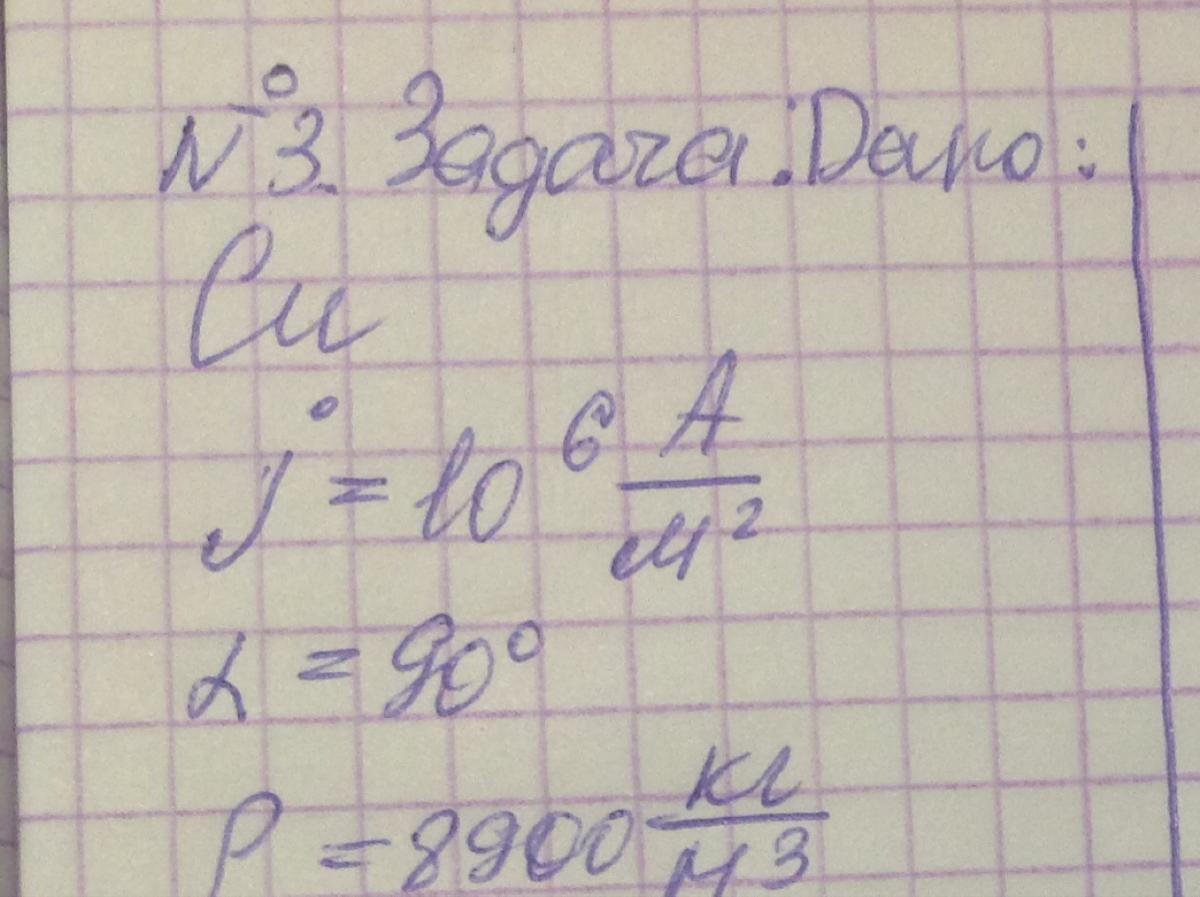 №3. Задача: Дано:
Cu
j = 10⁶ А/м²
α = 90°
ρ = 8900 кг/м³